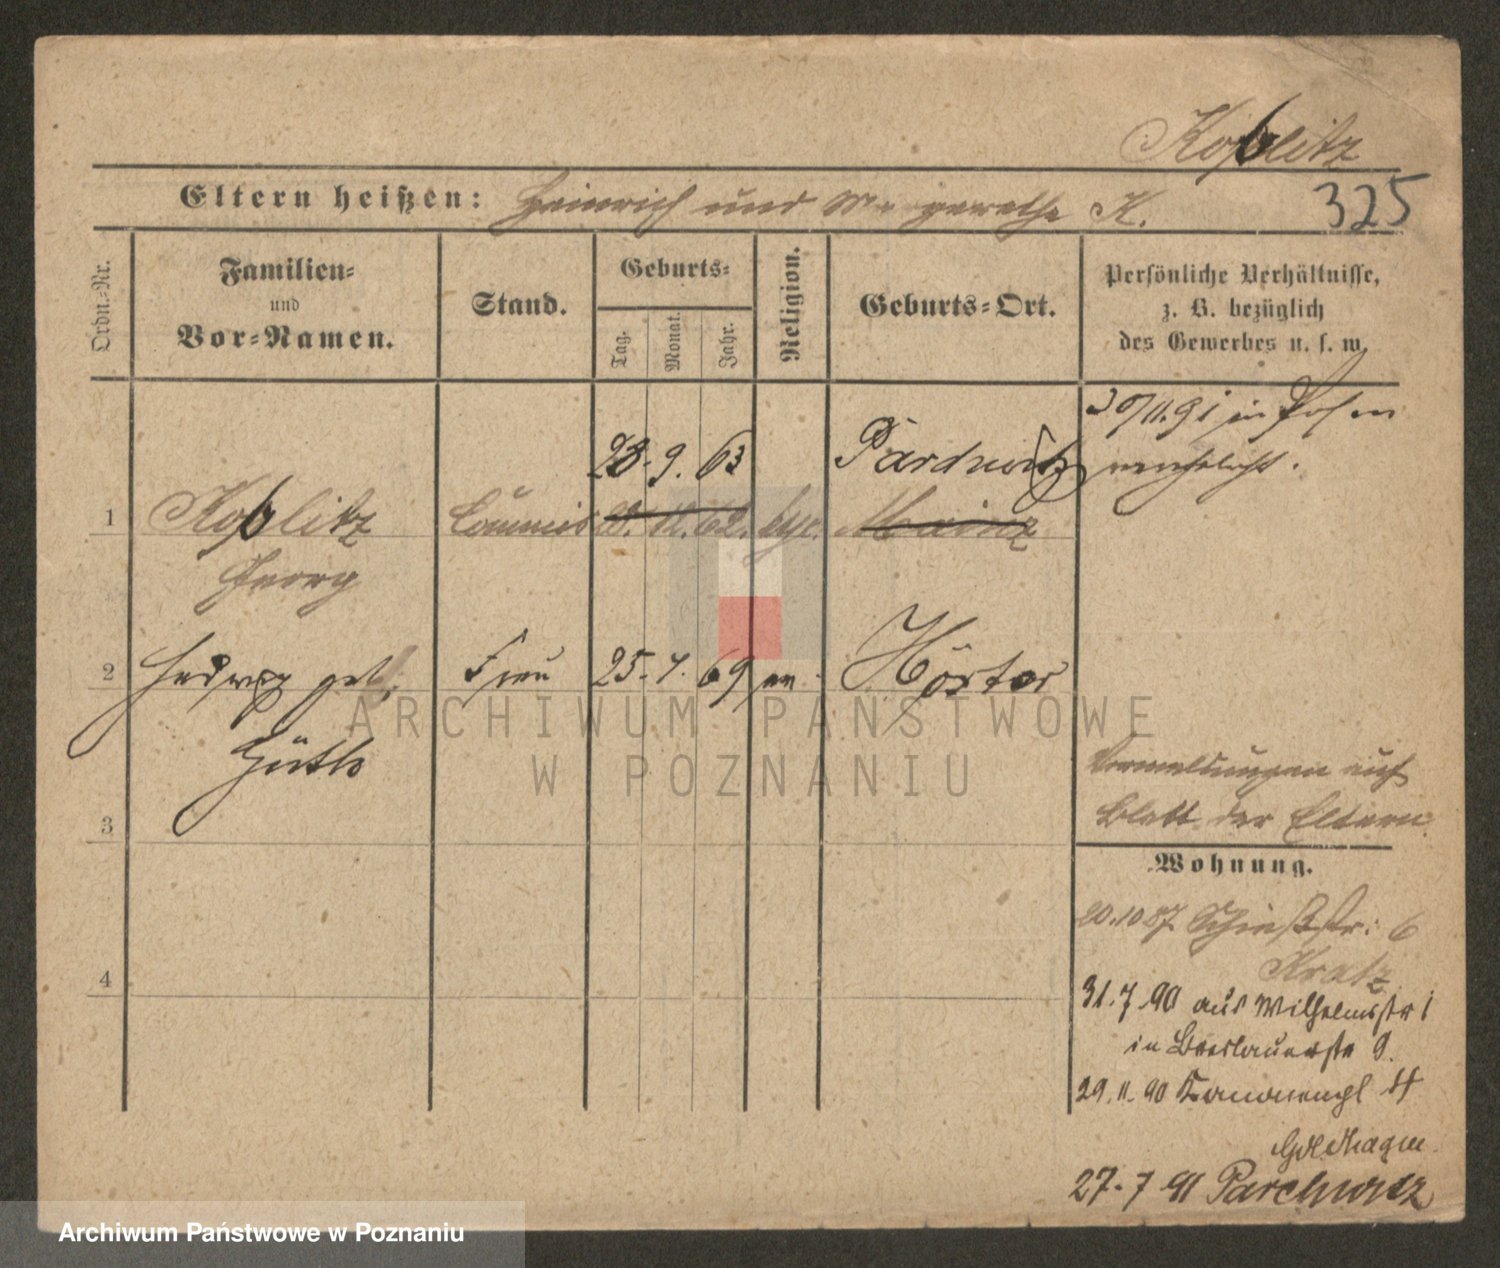 Koblitz
Eltern heißen: Heinrich und Margarethe K.
325
Ordn.-Nr.
Familien-
und
Vor-Namen.
Stand.
Geburts-
Tag.
Monat.
Jahr.
Religion.
Geburts-Ort.
Persönliche Verhältnisse,
z. B. bezüglich
des Gewerbes u. s. w.
30/11.91 in Posen
verehelicht.
28. 9. 63
Pardwitz
1
Koblitz
Georg
Commis
62.
Mainz
2
Hedwig geb.
Frau
25. 7. 69
ev.
Höxter
3
Vermeldungen auf
Blatt der Eltern.
Wohnung.
20.10 87 Schießstr: 6
Kratz
31.7.90 aus Wilhelmsstr 1
in Breslauerstr 9.
29.11.90 Kanonenpl
27-7 91 Parchwitz
4
ARCHIWUM PAŃSTWOWE
W POZNANIU
Archiwum Państwowe w Poznaniu